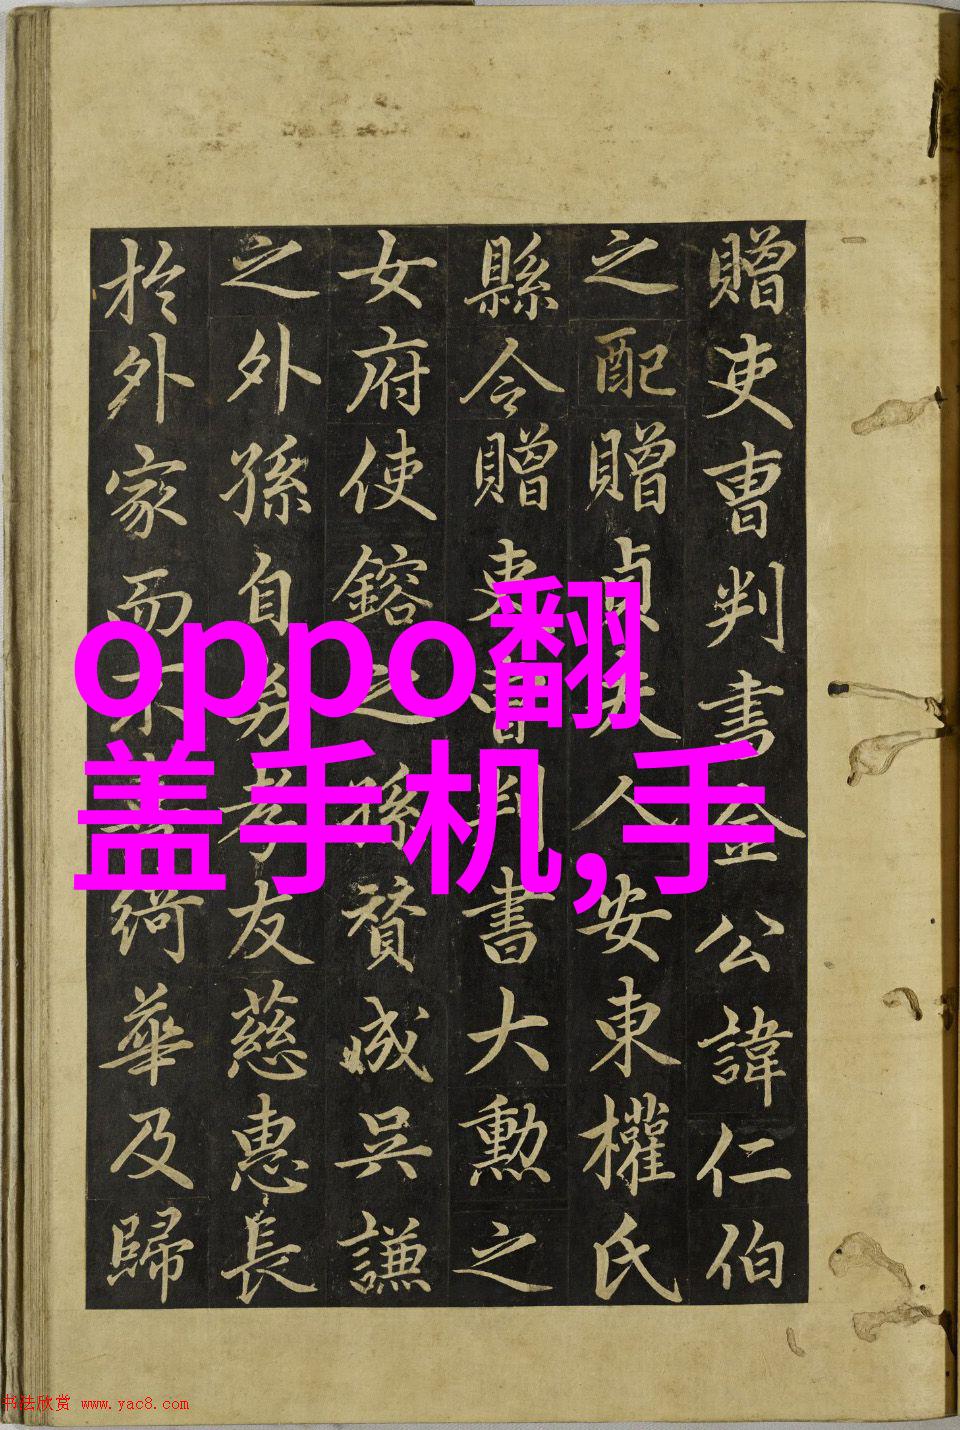 贈吏曹判書金公諱仁伯
之配贈貞夫人安東權氏
縣令贈吏曹判書大勳之
女府使鎔之孫賛成吳謙
之外孫自幼孝友慈惠長
於外家而不喜綺華及歸
oppo翻
盖手机,手
书法欣赏 www.yac8.com